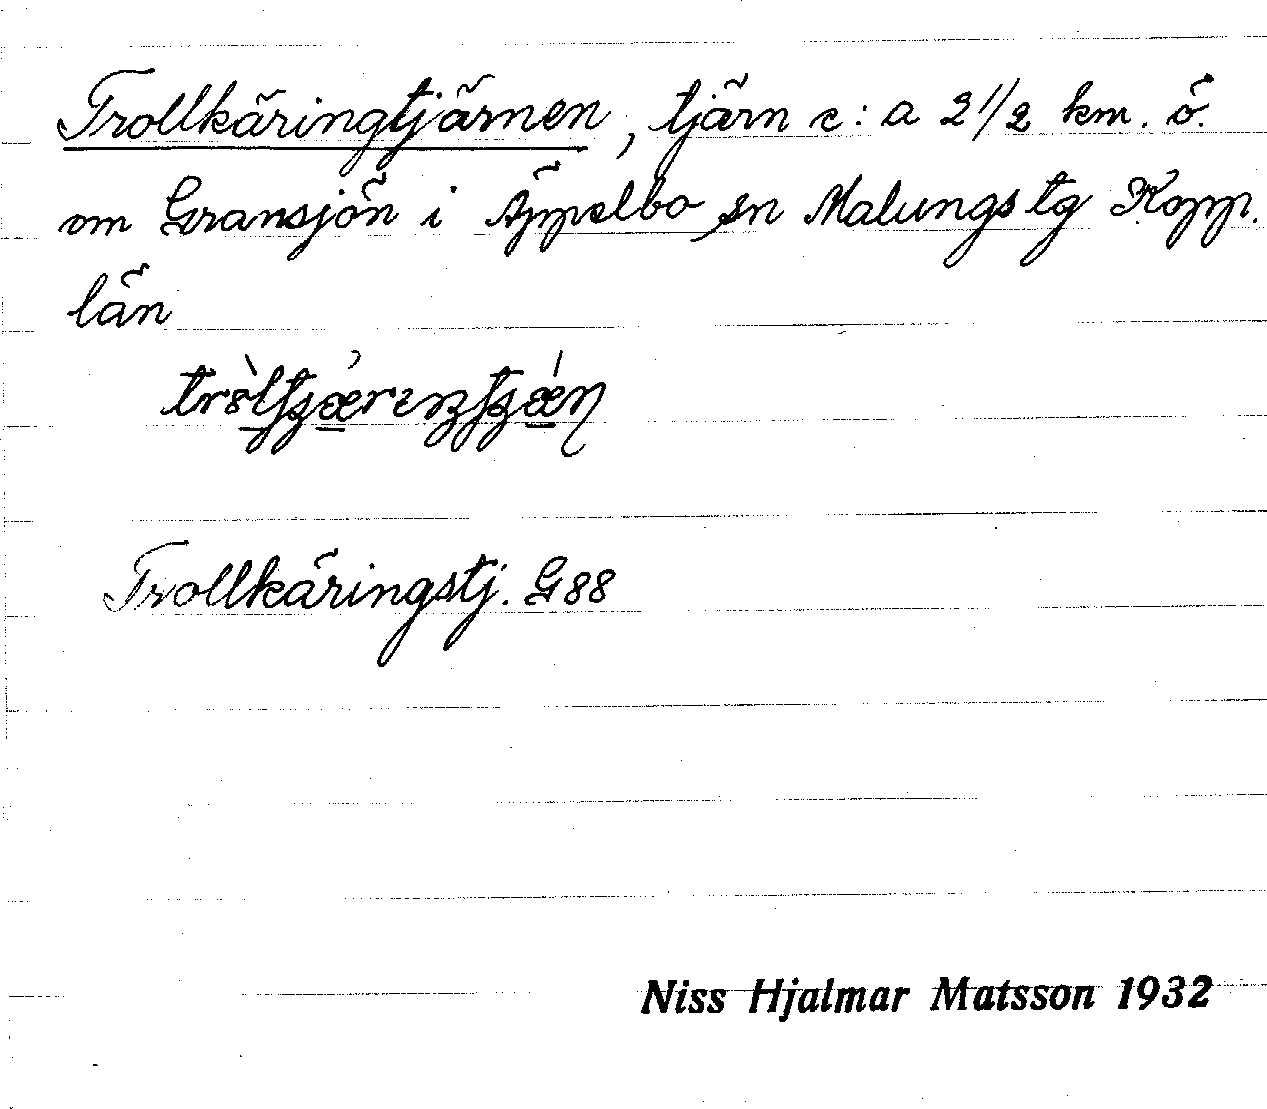 Trollkäringtjärnen, tjärn c:a 2 1/2 km. ö.
om Gransjön i Äppelbo sn Malungs tg Kopp.
län
Trollkäringstj. G88
Niss Hjalmar Matsson 1932